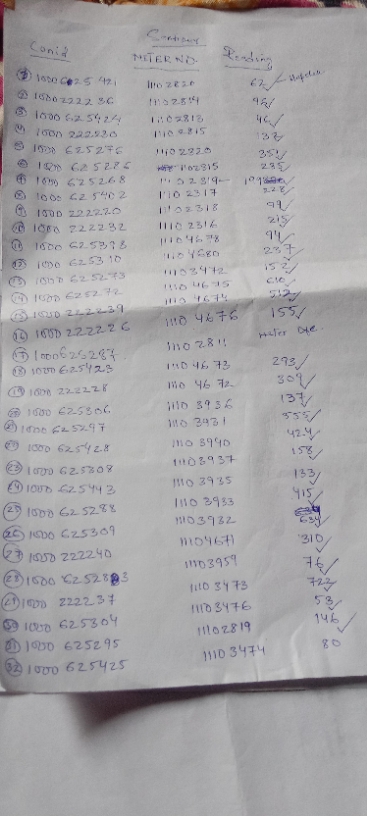 Conid METERNO Reading
① 1000625421 11102820 62 ✓
② 1000222236 11102814 96 ✓
③ 1000625424 11102813 46 ✓
④ 1000222230 11102815 133
⑤ 1000625276 11102320 351 ✓
⑥ 1000625286 1102315 235 ✓
⑦ 1000625268
⑧ 1000625402 11102317 228
⑨ 1000222220 11102318 99 ✓
⑩ 1000222232 11102316 215
⑪ 1000625398 11104678 94 ✓
⑫ 1000625310 11104680 237 ✓
⑬ 1000625273 11103472 152 ✓
⑭ 1000625272 11104675 610
⑮ 1000222239 11104674 512 ✓
⑯ 1000222226 11104676 155 ✓
⑰ 1000625287 11102811
⑱ 1000625423 11104673 293 ✓
⑲ 1000222228 11104672 309 ✓
⑳ 1000625306 11103936 137 ✓
㉑ 1000625297 11103931 555 ✓
㉒ 1000625428 11103940 424 ✓
㉓ 1000625308 11103937 158 ✓
㉔ 1000625443 11103935 133
㉕ 1000625288 11103933 415 ✓
㉖ 1000625309 11103932 634 ✓
㉗ 1000222240 11104671 310 ✓
㉘ 1000625283 11103959 76 ✓
㉙ 1000222237 11103473 722 ✓
㉚ 1000625304 11103476 53 ✓
㉛ 1000625295 11102819 146 ✓
㉜ 1000625425 11103474 80